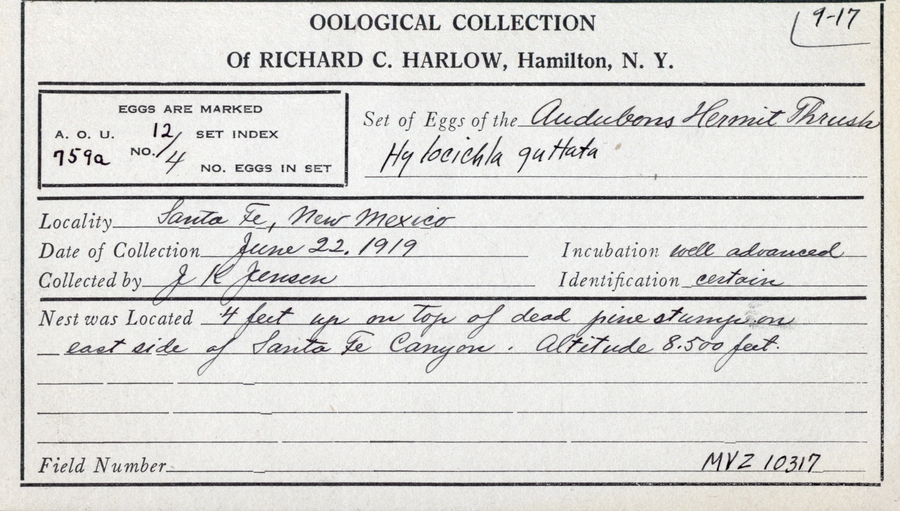 OOLOGICAL COLLECTION
9-17
Of RICHARD C. HARLOW, Hamilton, N. Y.
EGGS ARE MARKED
A. O. U. 12/4 SET INDEX
759a NO. NO. EGGS IN SET
Set of Eggs of the Audubons Hermit Thrush
Hylocichla guttata
Locality Santa Fe, New Mexico
Date of Collection June 22. 1919 Incubation well advanced
Collected by J K Jensen Identification certain
Nest was Located 4 feet up on top of dead pine stump on
east side of Santa Fe Canyon. Altitude 8.500 feet.
Field Number MVZ 10317